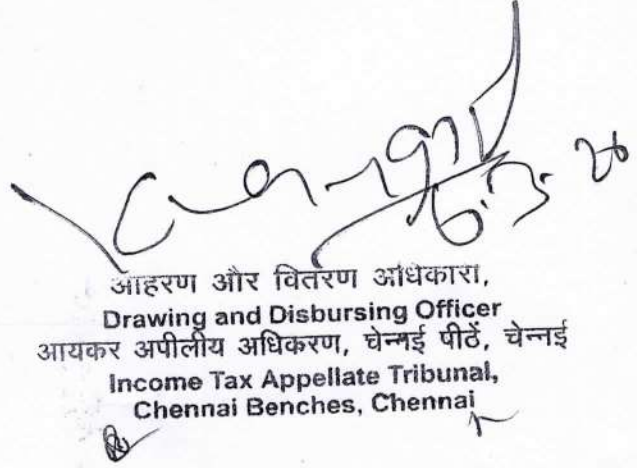 6.3.20
आहरण और वितरण अधिकारी,
Drawing and Disbursing Officer
आयकर अपीलीय अधिकरण, चेन्नई पीठें, चेन्नई
Income Tax Appellate Tribunal,
Chennai Benches, Chennai